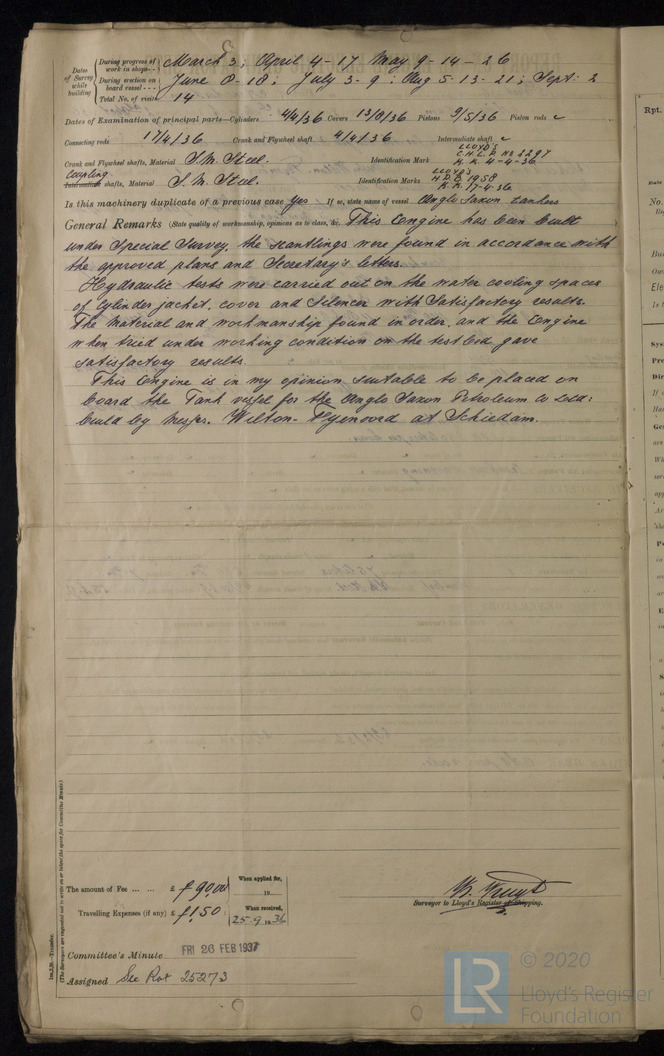 Dates of Survey while building
During progress of work in shops - - March 3; April 4-17 May 9-14-26
During erection on board vessel - - - June 8-18; July 3-9; Aug 5-13-21; Sept: 2
Total No. of visits 14
Dates of Examination of principal parts—Cylinders 4/4/36 Covers 13/8/36 Pistons 9/5/36 Piston rods ✓
Connecting rods 17/4/36 Crank and Flywheel shaft 4/4/36 Intermediate shaft ✓
Crank and Flywheel shafts, Material S.M. Steel. Identification Mark LLOYD'S C.H.L.R. No 2297 K.K. 4-4-36
Coupling Intermediate shafts, Material S.M. Steel. Identification Marks LLOYD'S H.D.B. 1958 K.K. 17-4-36
Is this machinery duplicate of a previous case Yes If so, state name of vessel Anglo Saxon tankers
General Remarks (State quality of workmanship, opinions as to class, &c. This Engine has been built
under Special Survey, the scantlings were found in accordance with
the approved plans and Secretary's letters.
Hydraulic tests were carried out on the water cooling spaces
of cylinder jacket, cover and Silencer with Satisfactory results.
The Material and workmanship found in order, and the Engine
when tried under working condition on the test bed gave
satisfactory results.
This Engine is in my opinion suitable to be placed on
board the Tank vessel for the Anglo Saxon Petroleum Co Ltd:
build by Messrs. Wilton-Fyenoord at Schiedam.
1m,3,30.—Transfer.
(The Surveyors are requested not to write on or below the space for Committee Minute.)
The amount of Fee ... ... £ f 90,00
When applied for, 19
Travelling Expenses (if any) £ f 1.50
When received, 25-9 1936
Surveyor to Lloyd's Register of Shipping.
Committee's Minute FRI 26 FEB 1937
Assigned See Rot 25273
Rpt.
© 2020
LR
Lloyd's Register
Foundation